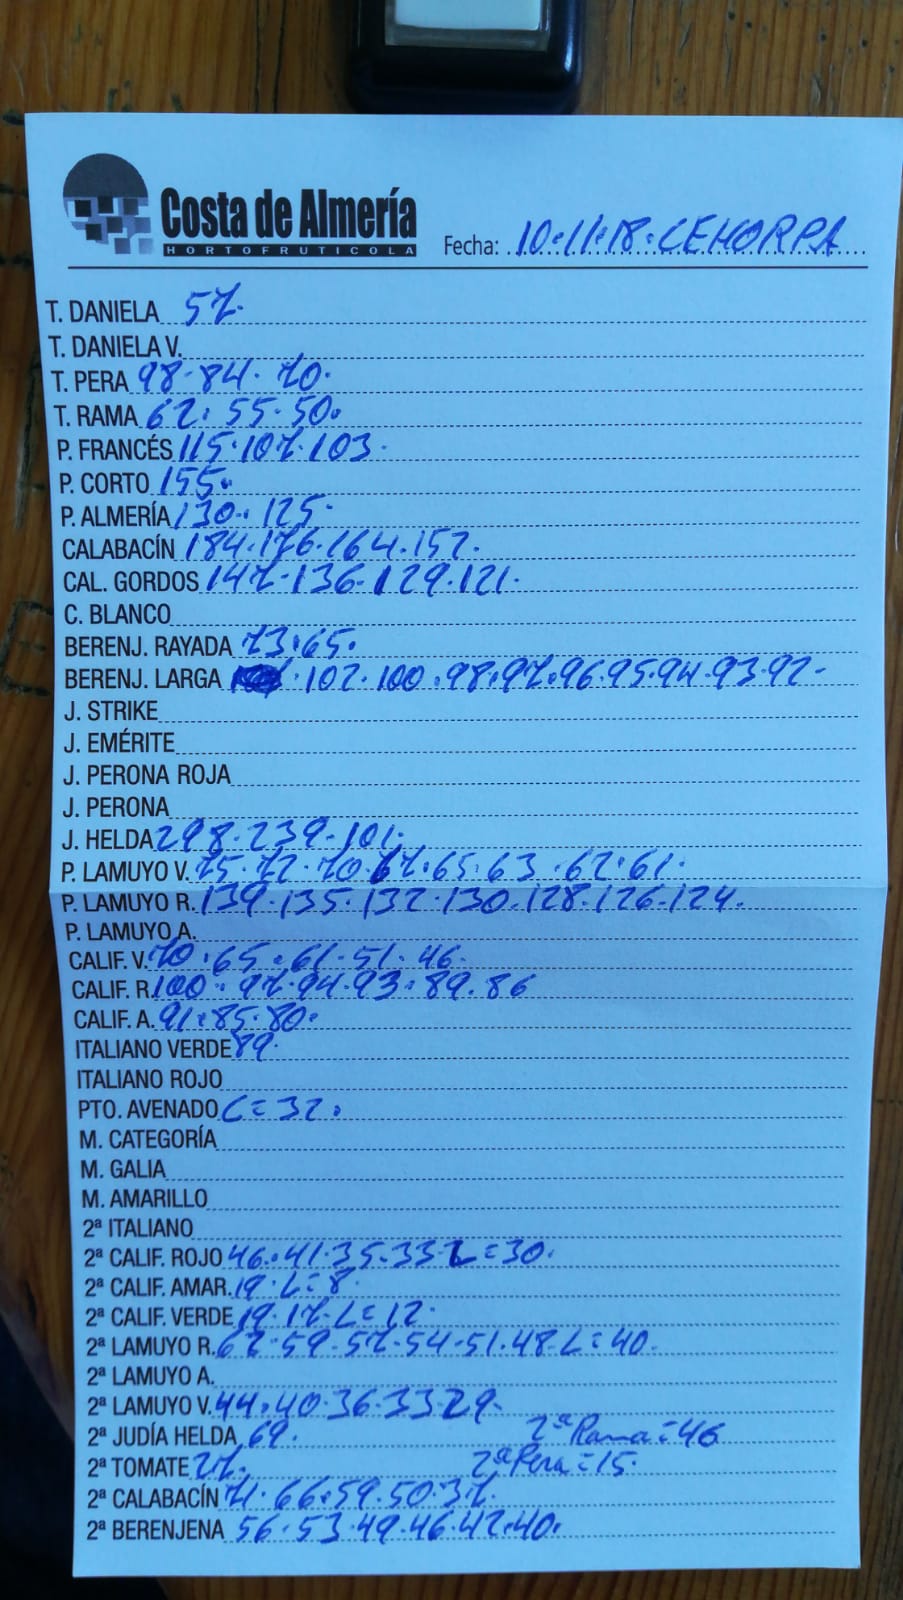 Costa de Almería
HORTOFRUTICOLA
Fecha: 10.11.18.CEHORPA
T. DANIELA 57.
T. DANIELA V.
T. PERA 98.84.70.
T. RAMA 62.55.50.
P. FRANCÉS 115.107.103.
P. CORTO 155.
P. ALMERÍA 130.125.
CALABACÍN 184.176.164.152.
CAL. GORDOS 147.136.129.121.
C. BLANCO
BERENJ. RAYADA 73.65.
BERENJ. LARGA .102.100.98.97.96.95.94.93.92.
J. STRIKE
J. EMÉRITE
J. PERONA ROJA
J. PERONA
J. HELDA 298.239.101.
P. LAMUYO V. 75.72.70.67.65.63.62.61.
P. LAMUYO R. 139.135.132.130.128.126.124.
P. LAMUYO A.
CALIF. V. 70.65.61.51.46.
CALIF. R. 100.97.94.93.89.86
CALIF. A. 91.85.80.
ITALIANO VERDE 89.
ITALIANO ROJO
PTO. AVENADO C=32.
M. CATEGORÍA
M. GALIA
M. AMARILLO
2ª ITALIANO
2ª CALIF. ROJO 46.41.35.33 L=30.
2ª CALIF. AMAR. 19.L=8.
2ª CALIF. VERDE 19.17.L=12.
2ª LAMUYO R. 62.59.57.54.51.48.L=40.
2ª LAMUYO A.
2ª LAMUYO V. 44.40.36.33.29.
2ª JUDÍA HELDA 69. 2ª Rama=46
2ª TOMATE 27. 2ª Pera=15.
2ª CALABACÍN 71.66.59.50.37.
2ª BERENJENA 56.53.49.46.42.40.